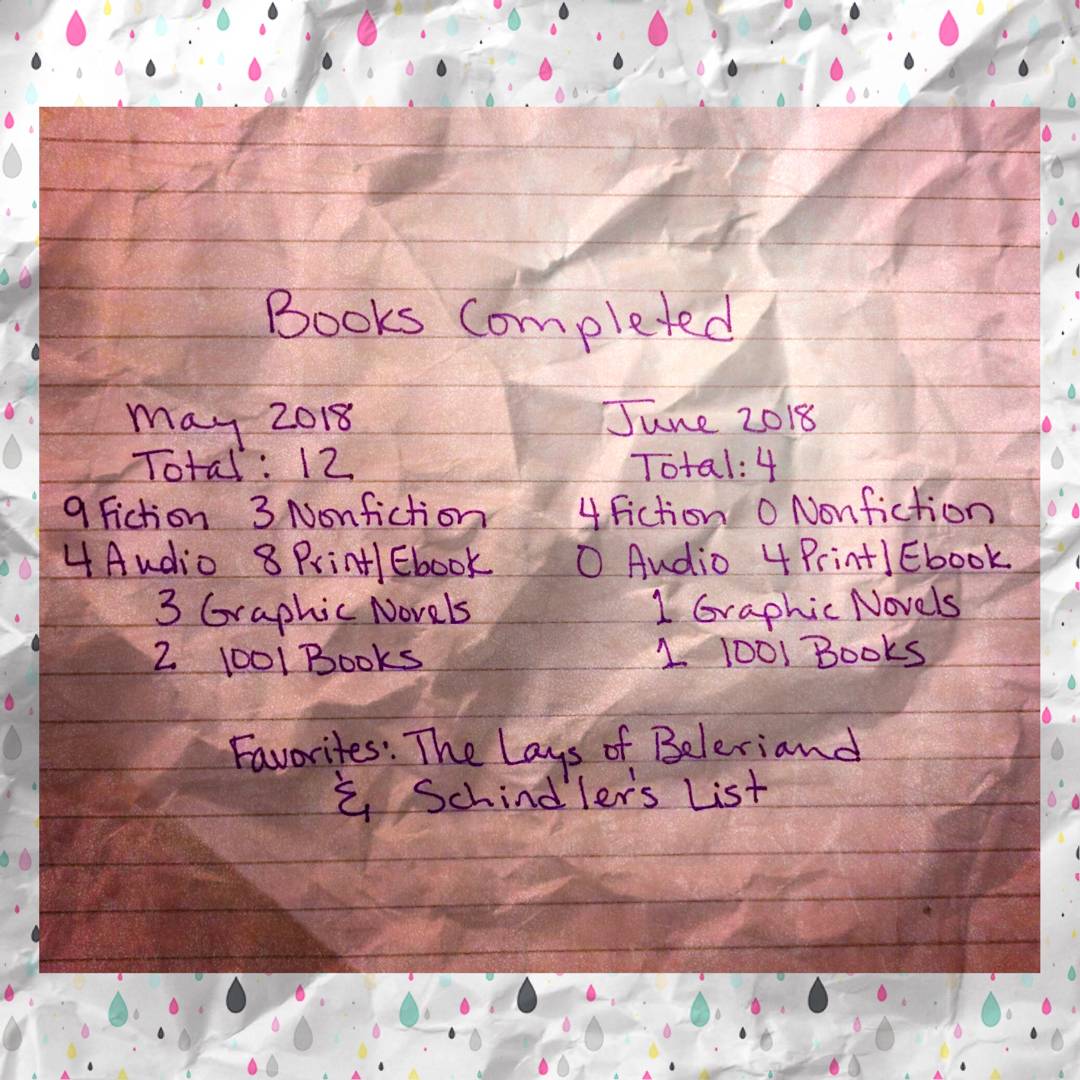 Books Completed
May 2018
Total: 12
9 Fiction 3 Nonfiction
4 Audio 8 Print/Ebook
3 Graphic Novels
2 1001 Books
June 2018
Total: 4
4 Fiction 0 Nonfiction
0 Audio 4 Print/Ebook
1 Graphic Novels
1 1001 Books
Favorites: The Lays of Beleriand
& Schindler's List